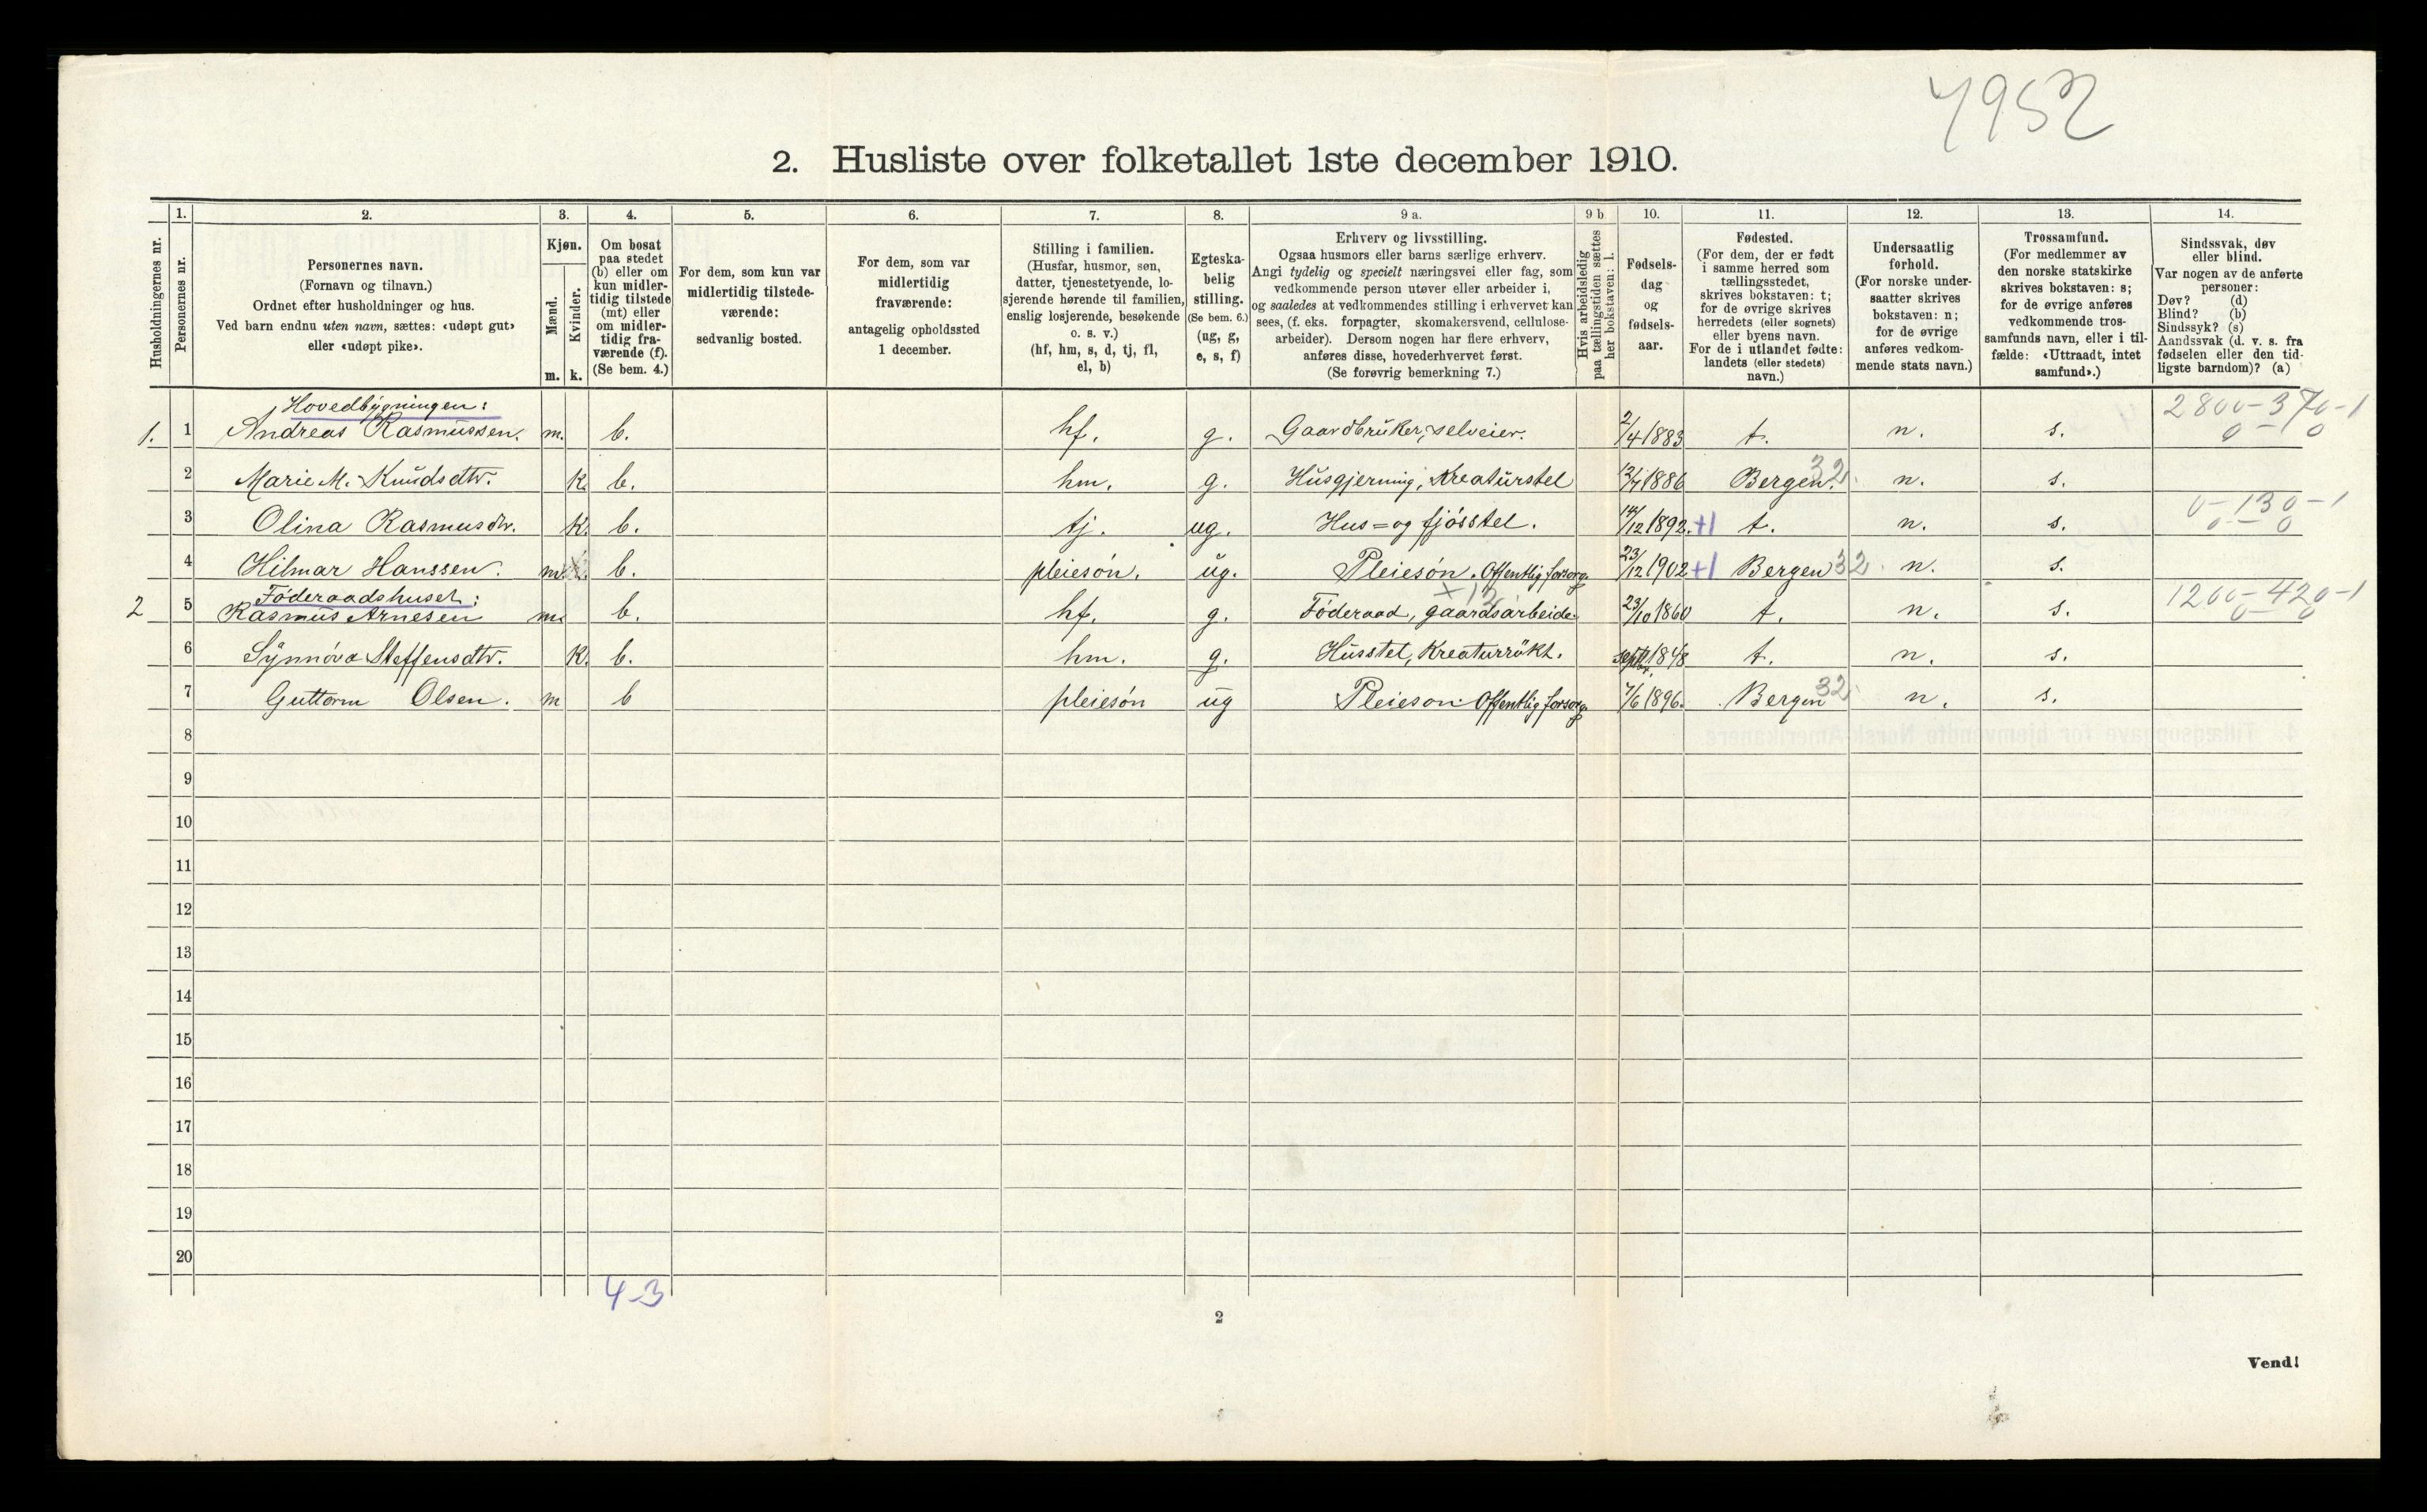 4952
2. Husliste over folketallet 1ste december 1910.
Husholdningernes nr.
1.
Personernes nr.
2.
Personernes navn.
(Fornavn og tilnavn.)
Ordnet efter husholdninger og hus.
Ved barn endnu uten navn, sættes: «udøpt gut»
eller «udøpt pike».
3.
Kjøn.
Mænd.
m.
Kvinder.
k.
4.
Om bosat
paa stedet
(b) eller om
kun midler-
tidig tilstede
(mt) eller
om midler-
tidig fra-
værende (f).
(Se bem. 4.)
5.
For dem, som kun var
midlertidig tilstede-
værende:
sedvanlig bosted.
6.
For dem, som var
midlertidig
fraværende:
antagelig opholdssted
1 december.
7.
Stilling i familien.
(Husfar, husmor, søn,
datter, tjenestetyende, lo-
sjerende hørende til familien,
enslig losjerende, besøkende
o. s. v.)
(hf, hm, s, d, tj, fl,
el, b)
8.
Egteska-
belig
stilling.
(Se bem. 6.)
(ug, g,
e, s, f)
9 a.
Erhverv og livsstilling.
Ogsaa husmors eller barns særlige erhverv.
Angi tydelig og specielt næringsvei eller fag, som
vedkommende person utøver eller arbeider i,
og saaledes at vedkommendes stilling i erhvervet kan
sees, (f. eks. forpagter, skomakersvend, cellulose-
arbeider). Dersom nogen har flere erhverv,
anføres disse, hovederhvervet først.
(Se forøvrig bemerkning 7.)
9 b
Hvis arbeidsledig
paa tællingstiden sættes
her bokstaven: l.
10.
Fødsels-
dag
og
fødsels-
aar.
11.
Fødested.
(For dem, der er født
i samme herred som
tællingsstedet,
skrives bokstaven: t;
for de øvrige skrives
herredets (eller sognets)
eller byens navn.
For de i utlandet fødte:
landets (eller stedets)
navn.)
12.
Undersaatlig
forhold.
(For norske under-
saatter skrives
bokstaven: n;
for de øvrige
anføres vedkom-
mende stats navn.)
13.
Trossamfund.
(For medlemmer av
den norske statskirke
skrives bokstaven: s;
for de øvrige anføres
vedkommende tros-
samfunds navn, eller i til-
fælde: «Uttraadt, intet
samfund».)
14.
Sindssvak, døv
eller blind.
Var nogen av de anførte
personer:
Døv? (d)
Blind? (b)
Sindssyk? (s)
Aandssvak (d. v. s. fra
fødselen eller den tid-
ligste barndom)? (a)
Hovedbygningen:
1. 1 Andreas Rasmussen. m. b. hf. g. Gaardbruker, selveier. 2/4 1883 t. n. s. 2800-370-1
0-0
2 Marie M. Knudsdtr. k. b. hm. g. Husgjerning, Kreaturstel 1886 Bergen. 32 n. s.
3 Olina Rasmusdtr. k. b. tj. ug. Hus- og fjósstel. 14/12 1892. +1 t. n. s. 0-130-1
0-0
4 Hilmar Hanssen. m. b. pleiesón. ug. Pleiesón. Offentlig forsorg. 23/12 1902 +1 Bergen 32 n. s.
Föderaadshuset:
2 5 Rasmus Arnesen m. b. hf. g. Föderaad, gaardsarbeide. 23/10 1860 t. n. s. 1200-420-1
0-0
6 Synnóva Steffensdtr. k. b. hm. g. Husstel, Kreaturrökt. 1848 t. n. s.
7 Guttorm Olsen. m b pleiesón ug Pleieson Offentlig forsorg. 7/6 1896. Bergen 32 n. s.
8
9
10
11
12
13
14
15
16
17
18
19
20
4-3
2
Vend!